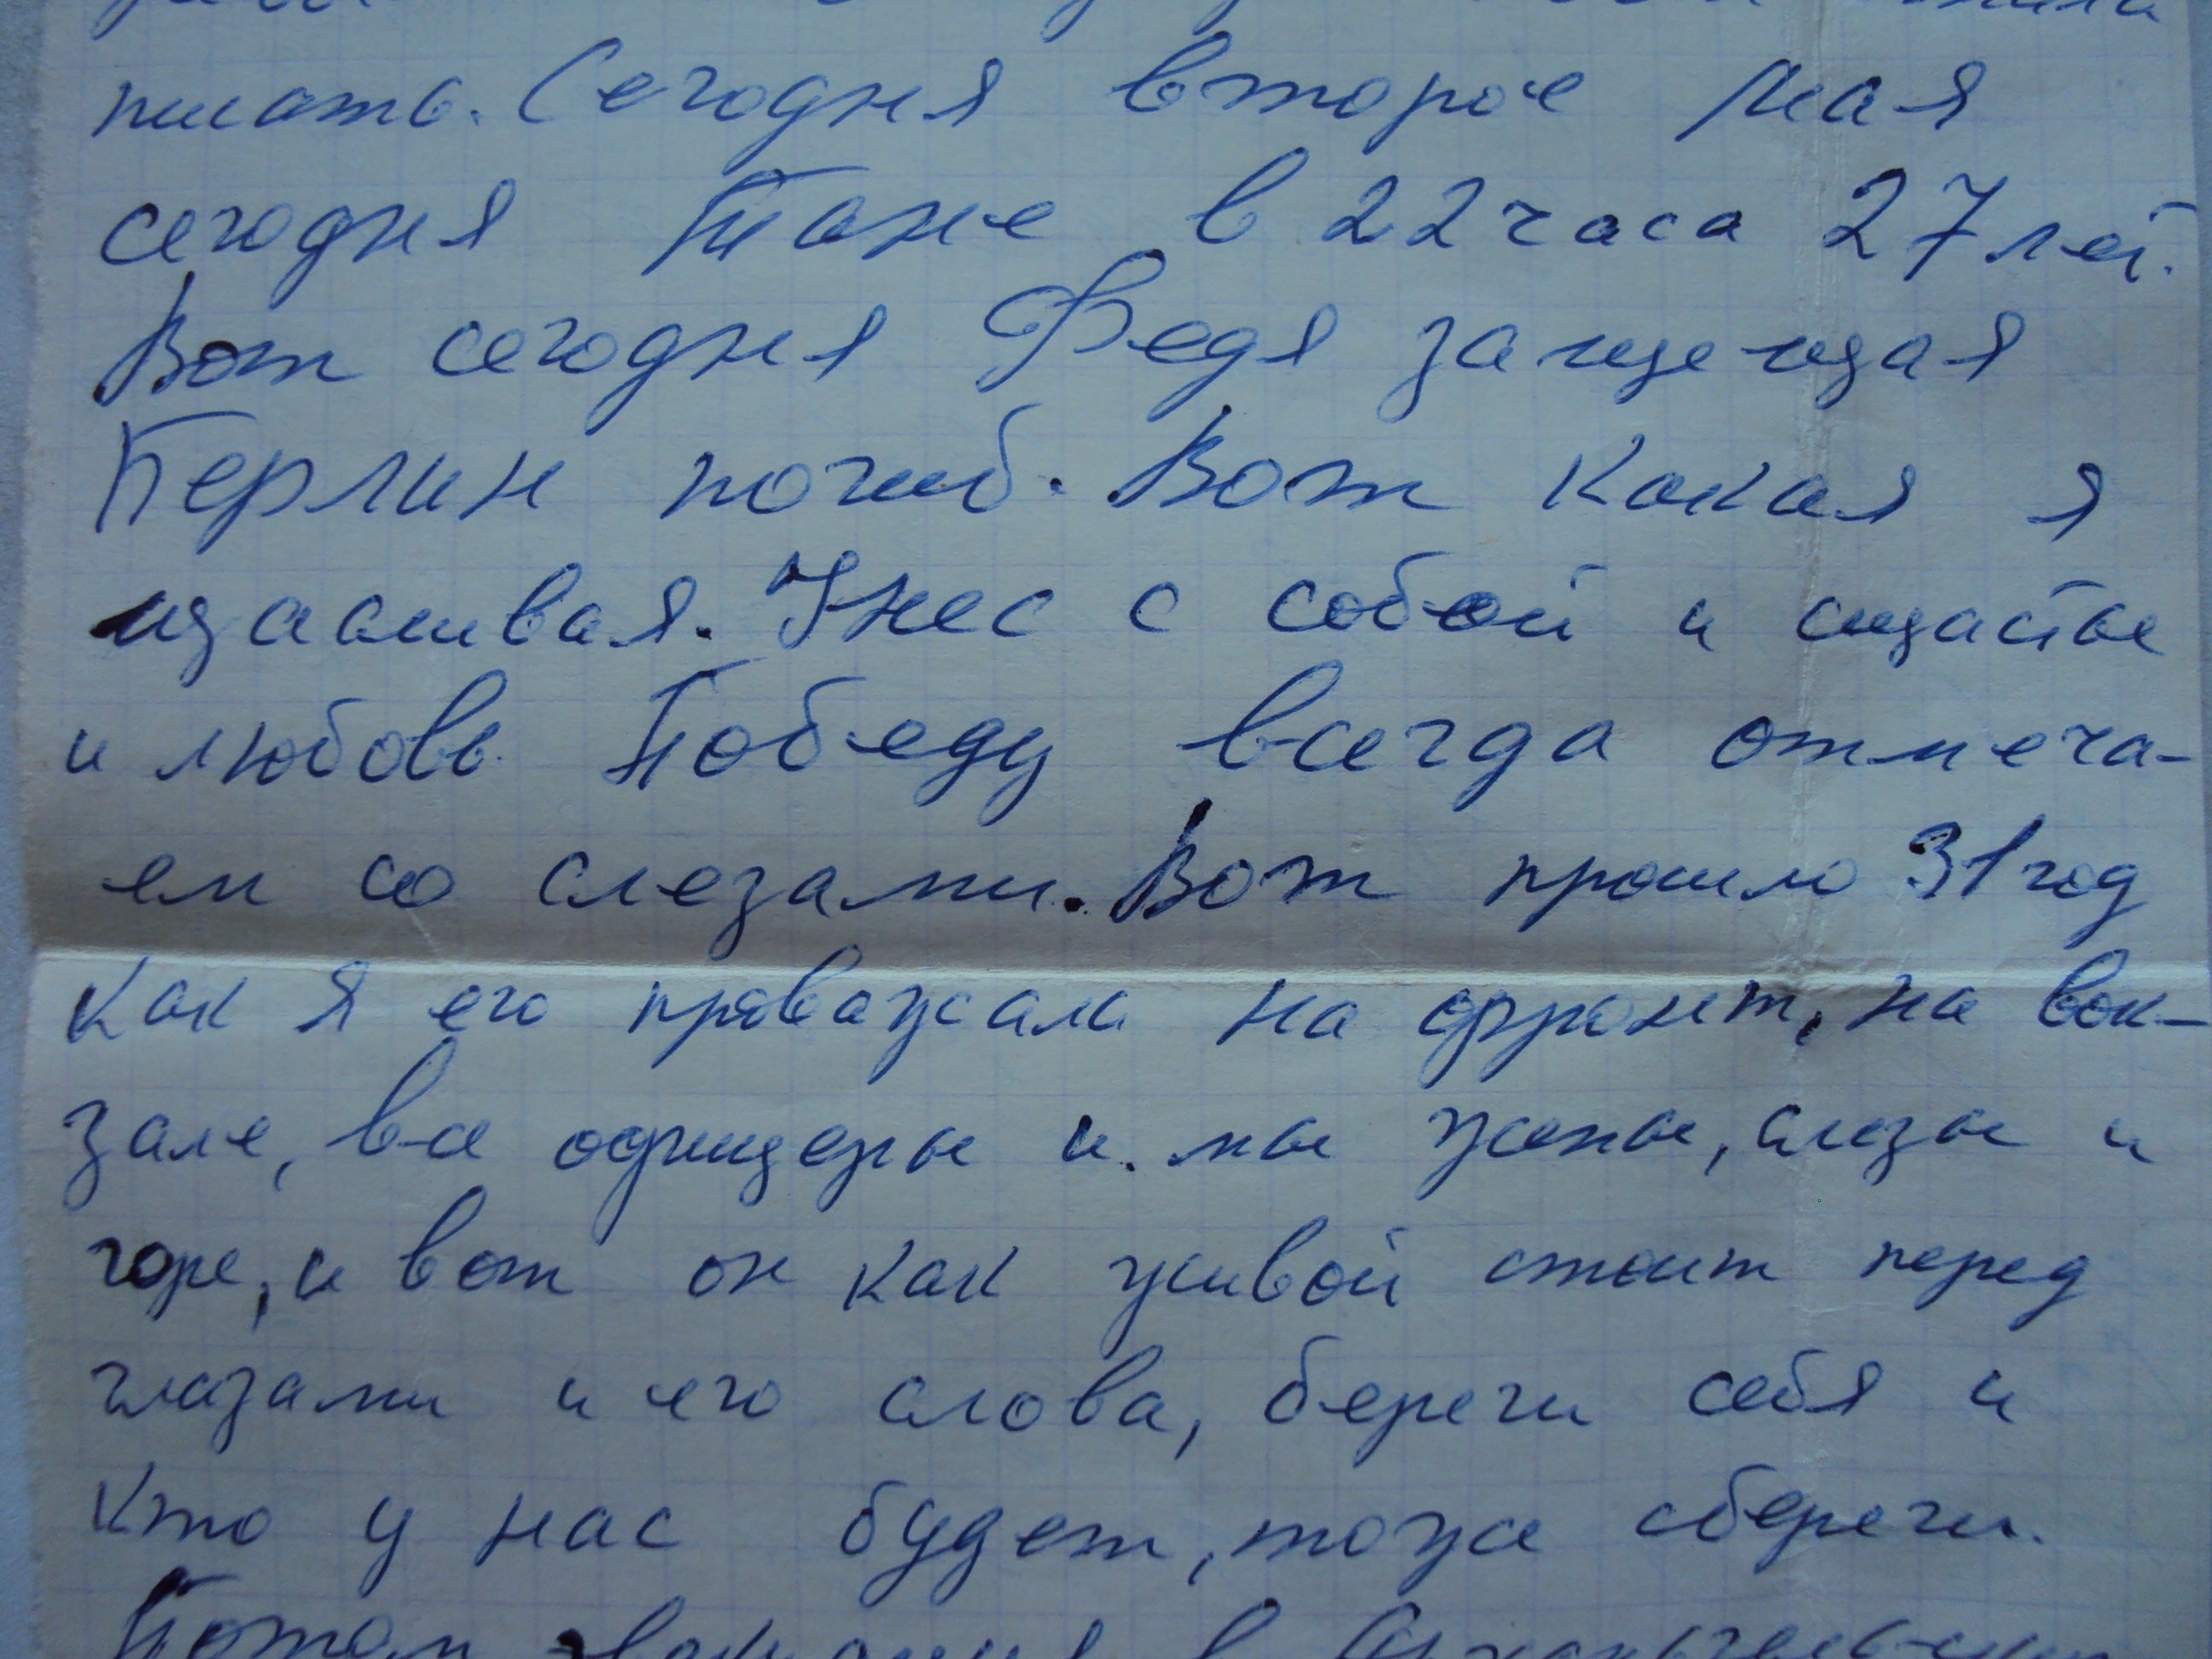 писать. Сегодня второе Мая
сегодня Тане в 22 часа 27 лет.
Вот сегодня Федя защещая
Берлин погиб. Вот какая я
щасливая. Унес с собой и сщастье
и любовь. Победу всегда отмеча-
ем со слезами. Вот прошло 31 год
как я его провожала на фронт, на вок-
зале, все офицеры и мы жены, слезы и
горе, и вот он как живой стоит перед
глазами и его слова, береги себя и
кто у нас будет, тоже сбереги.
Потом в